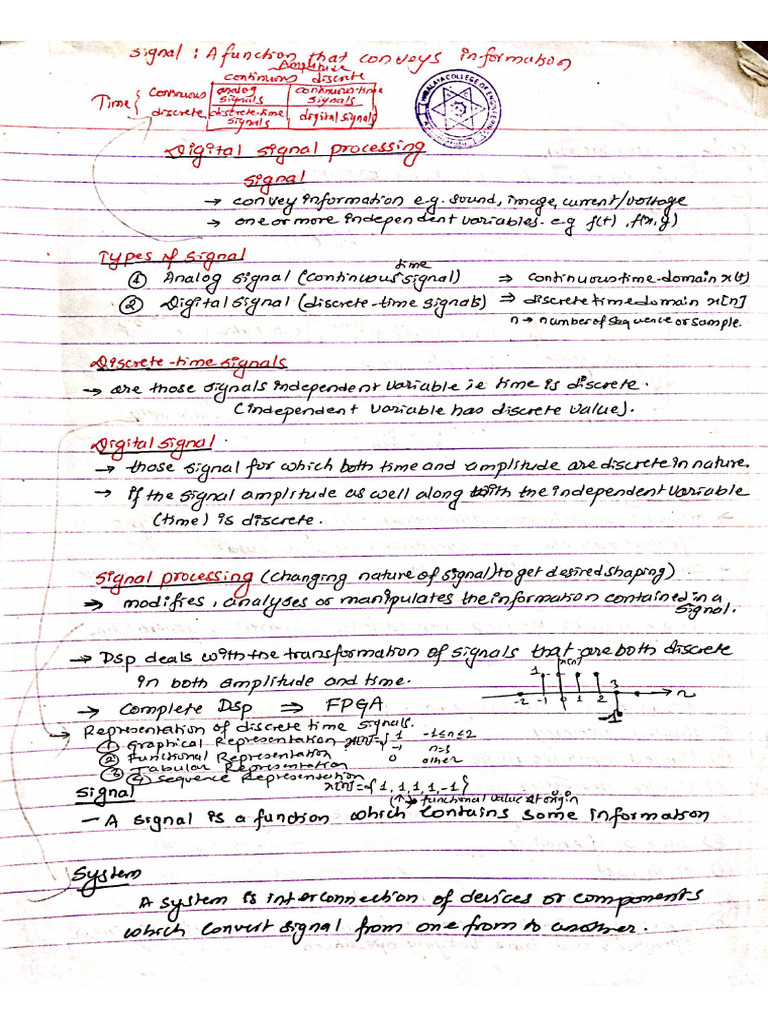 Signal : A function that conveys information
Amplitude
continuous discrete
Time { Continuous analog signals continuous-time signals
discrete discrete-time signals digital signals
HIMALAYA COLLEGE OF ENGINEERING
Digital signal processing
Signal
→ convey information e.g. sound, image, current/voltage
→ one or more independent variables. e.g f(t), f(x,y)
Types of signal
① Analog signal (continuous time signal) ⇒ continuous time-domain x(t)
② Digital signal (discrete-time signals) ⇒ discrete time domain x[n]
n → number of sequence or sample.
Discrete-time signals
→ are those signals independent variable i.e time is discrete.
(independent variable has discrete value).
Digital signal.
→ those signal for which both time and amplitude are discrete in nature.
→ if the signal amplitude as well along with the independent variable
(time) is discrete.
Signal processing (changing nature of signal) to get desired shaping)
⇒ modifies, analyses or manipulates the information contained in a
signal.
→ DSP deals with the transformation of signals that are both discrete
in both amplitude and time.
x[n]
1
-2 -1 0 1 2 3 → n
-1
→ complete DSP ⇒ FPGA
Representation of discrete time signals.
① Graphical Representation x[n]={ 1 -1≤n≤2
② Functional Representation -1 n=3
③ Tabular Representation 0 other
④ sequence Representation
x[n]={1, 1, 1, 1, -1}
(↑→ functional value at origin
Signal
- A signal is a function which contains some information
System
A system is interconnection of devices or components
which convert signal from one from to another.